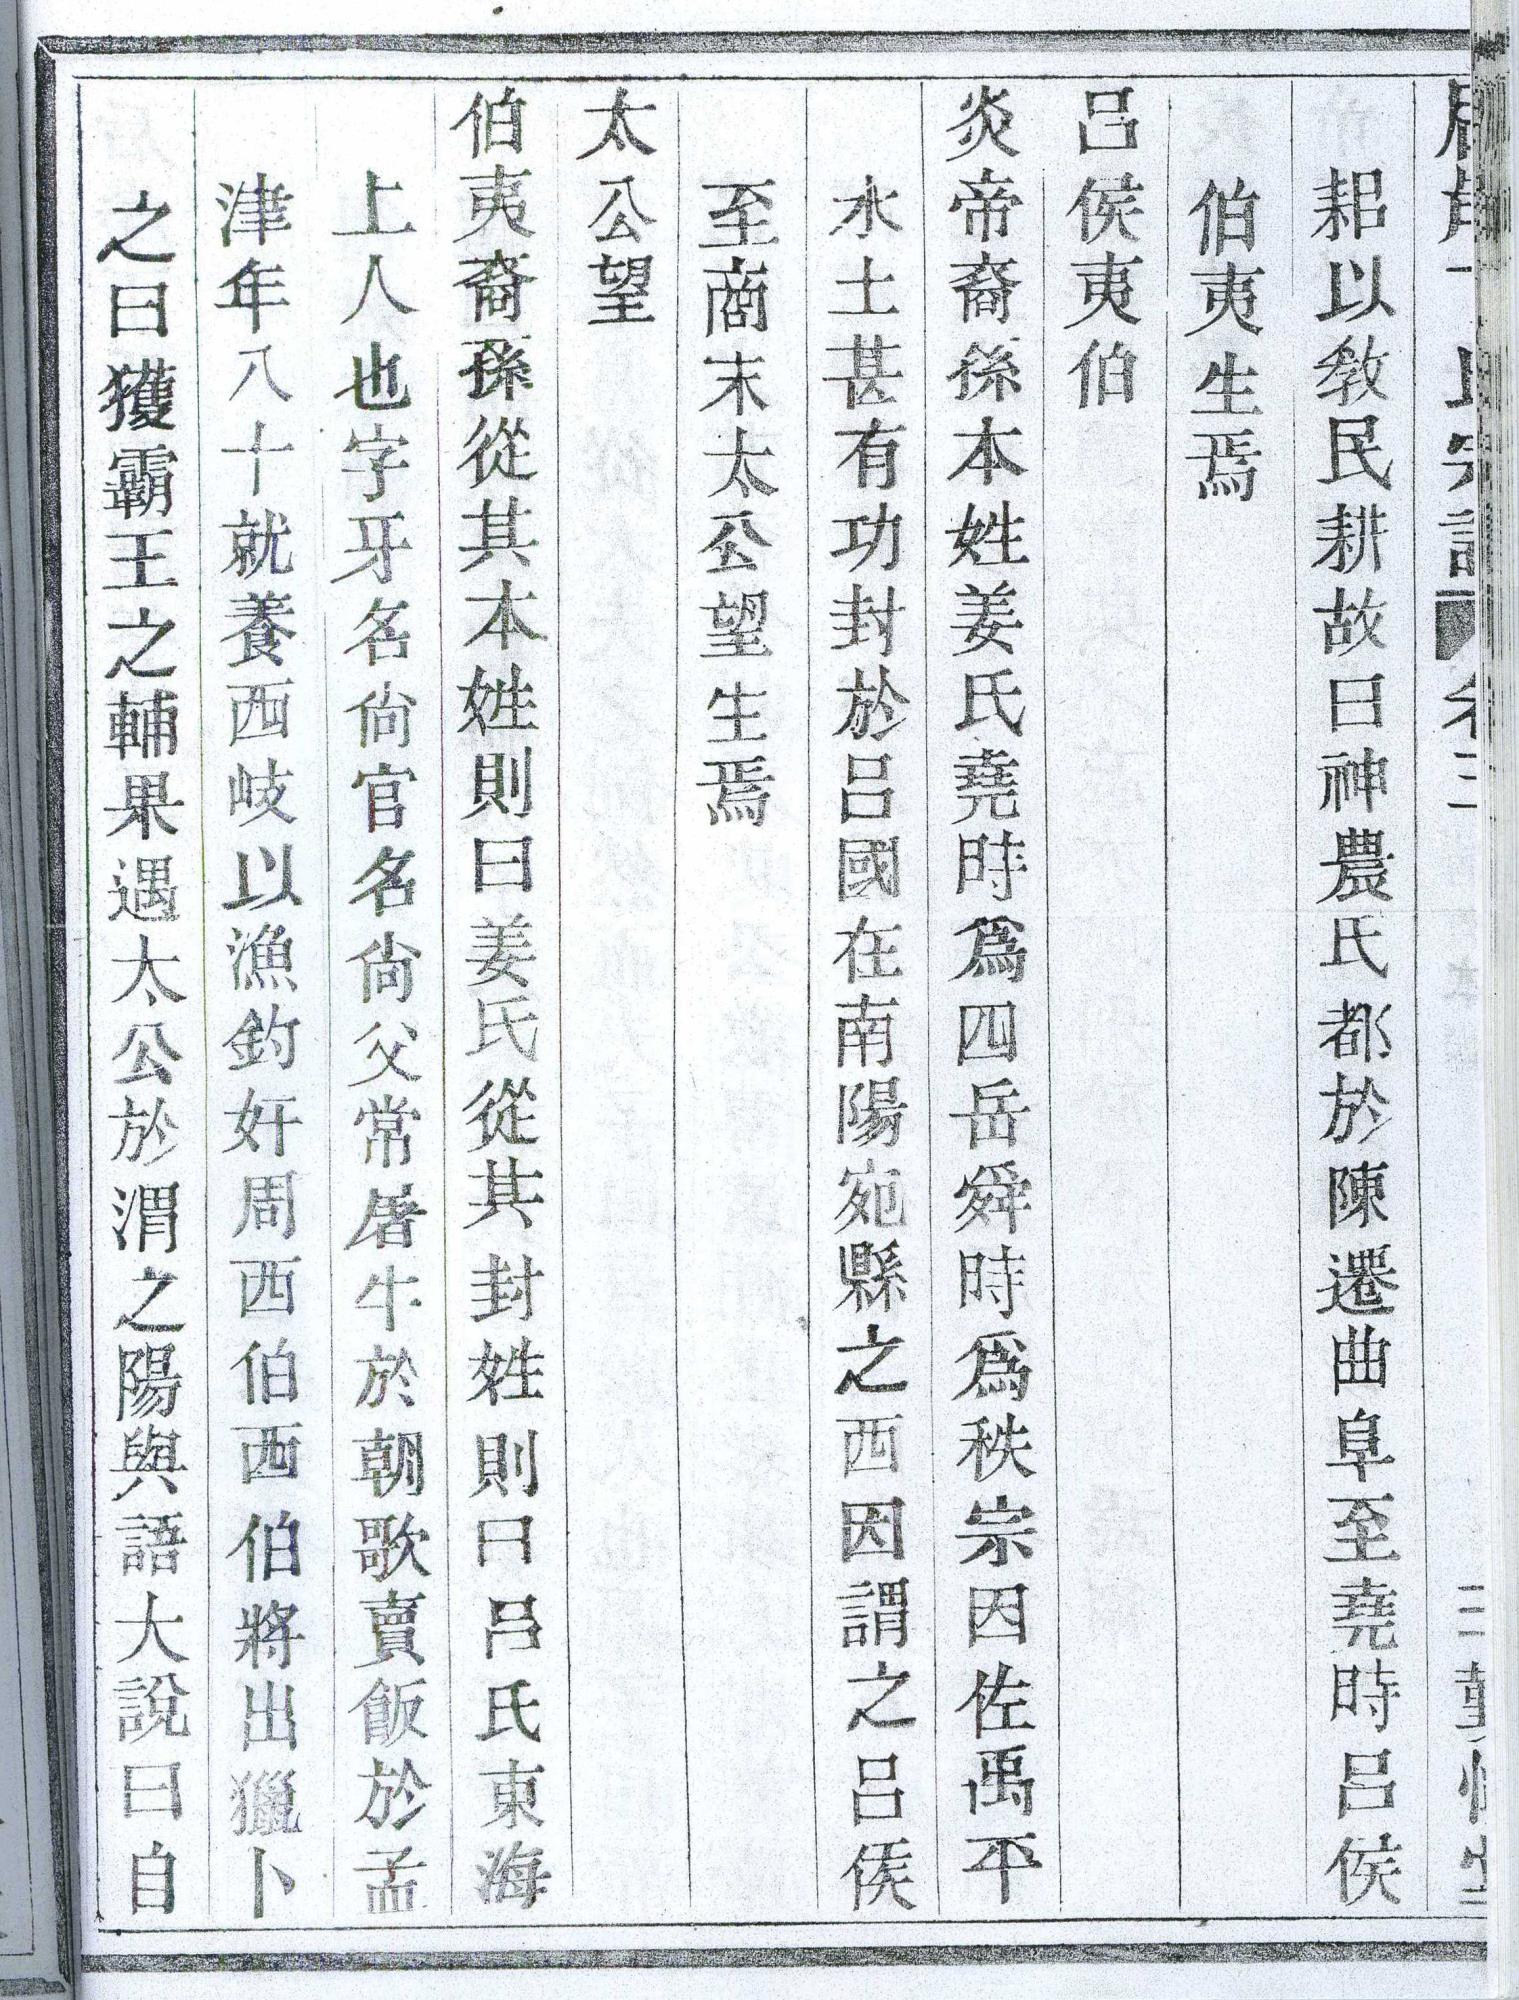 耜以敎民耕故曰神農氏都於陳遷曲阜至堯時呂侯
伯夷生焉
呂侯夷伯
炎帝裔孫本姓姜氏堯時爲四岳舜時爲秩宗因佐禹平
水土甚有功封於呂國在南陽宛縣之西因謂之呂侯
至商末太公望生焉
太公望
伯夷裔孫從其本姓則曰姜氏從其封姓則曰呂氏東海
上人也字牙名尙官名尙父常屠牛於朝歌賣飯於孟
津年八十就養西岐以漁釣奸周西伯西伯將出獵卜
之曰獲霸王之輔果遇太公於渭之陽與語大說曰自